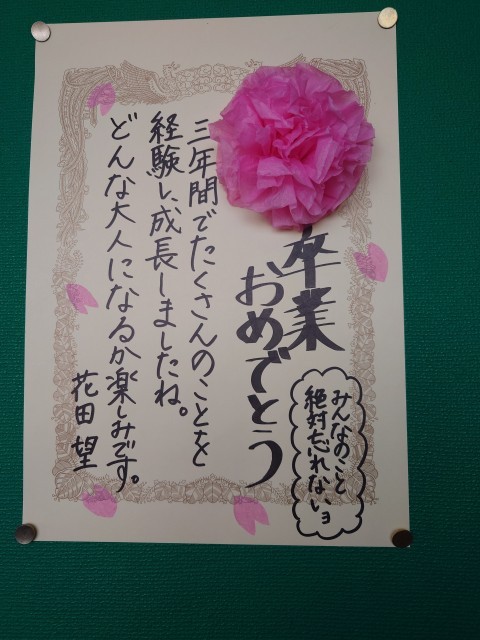 卒業
おめでとう
みんなのこと
絶対忘れないョ
三年間でたくさんのことを
経験し、成長しましたね。
どんな大人になるか楽しみです。
花田望